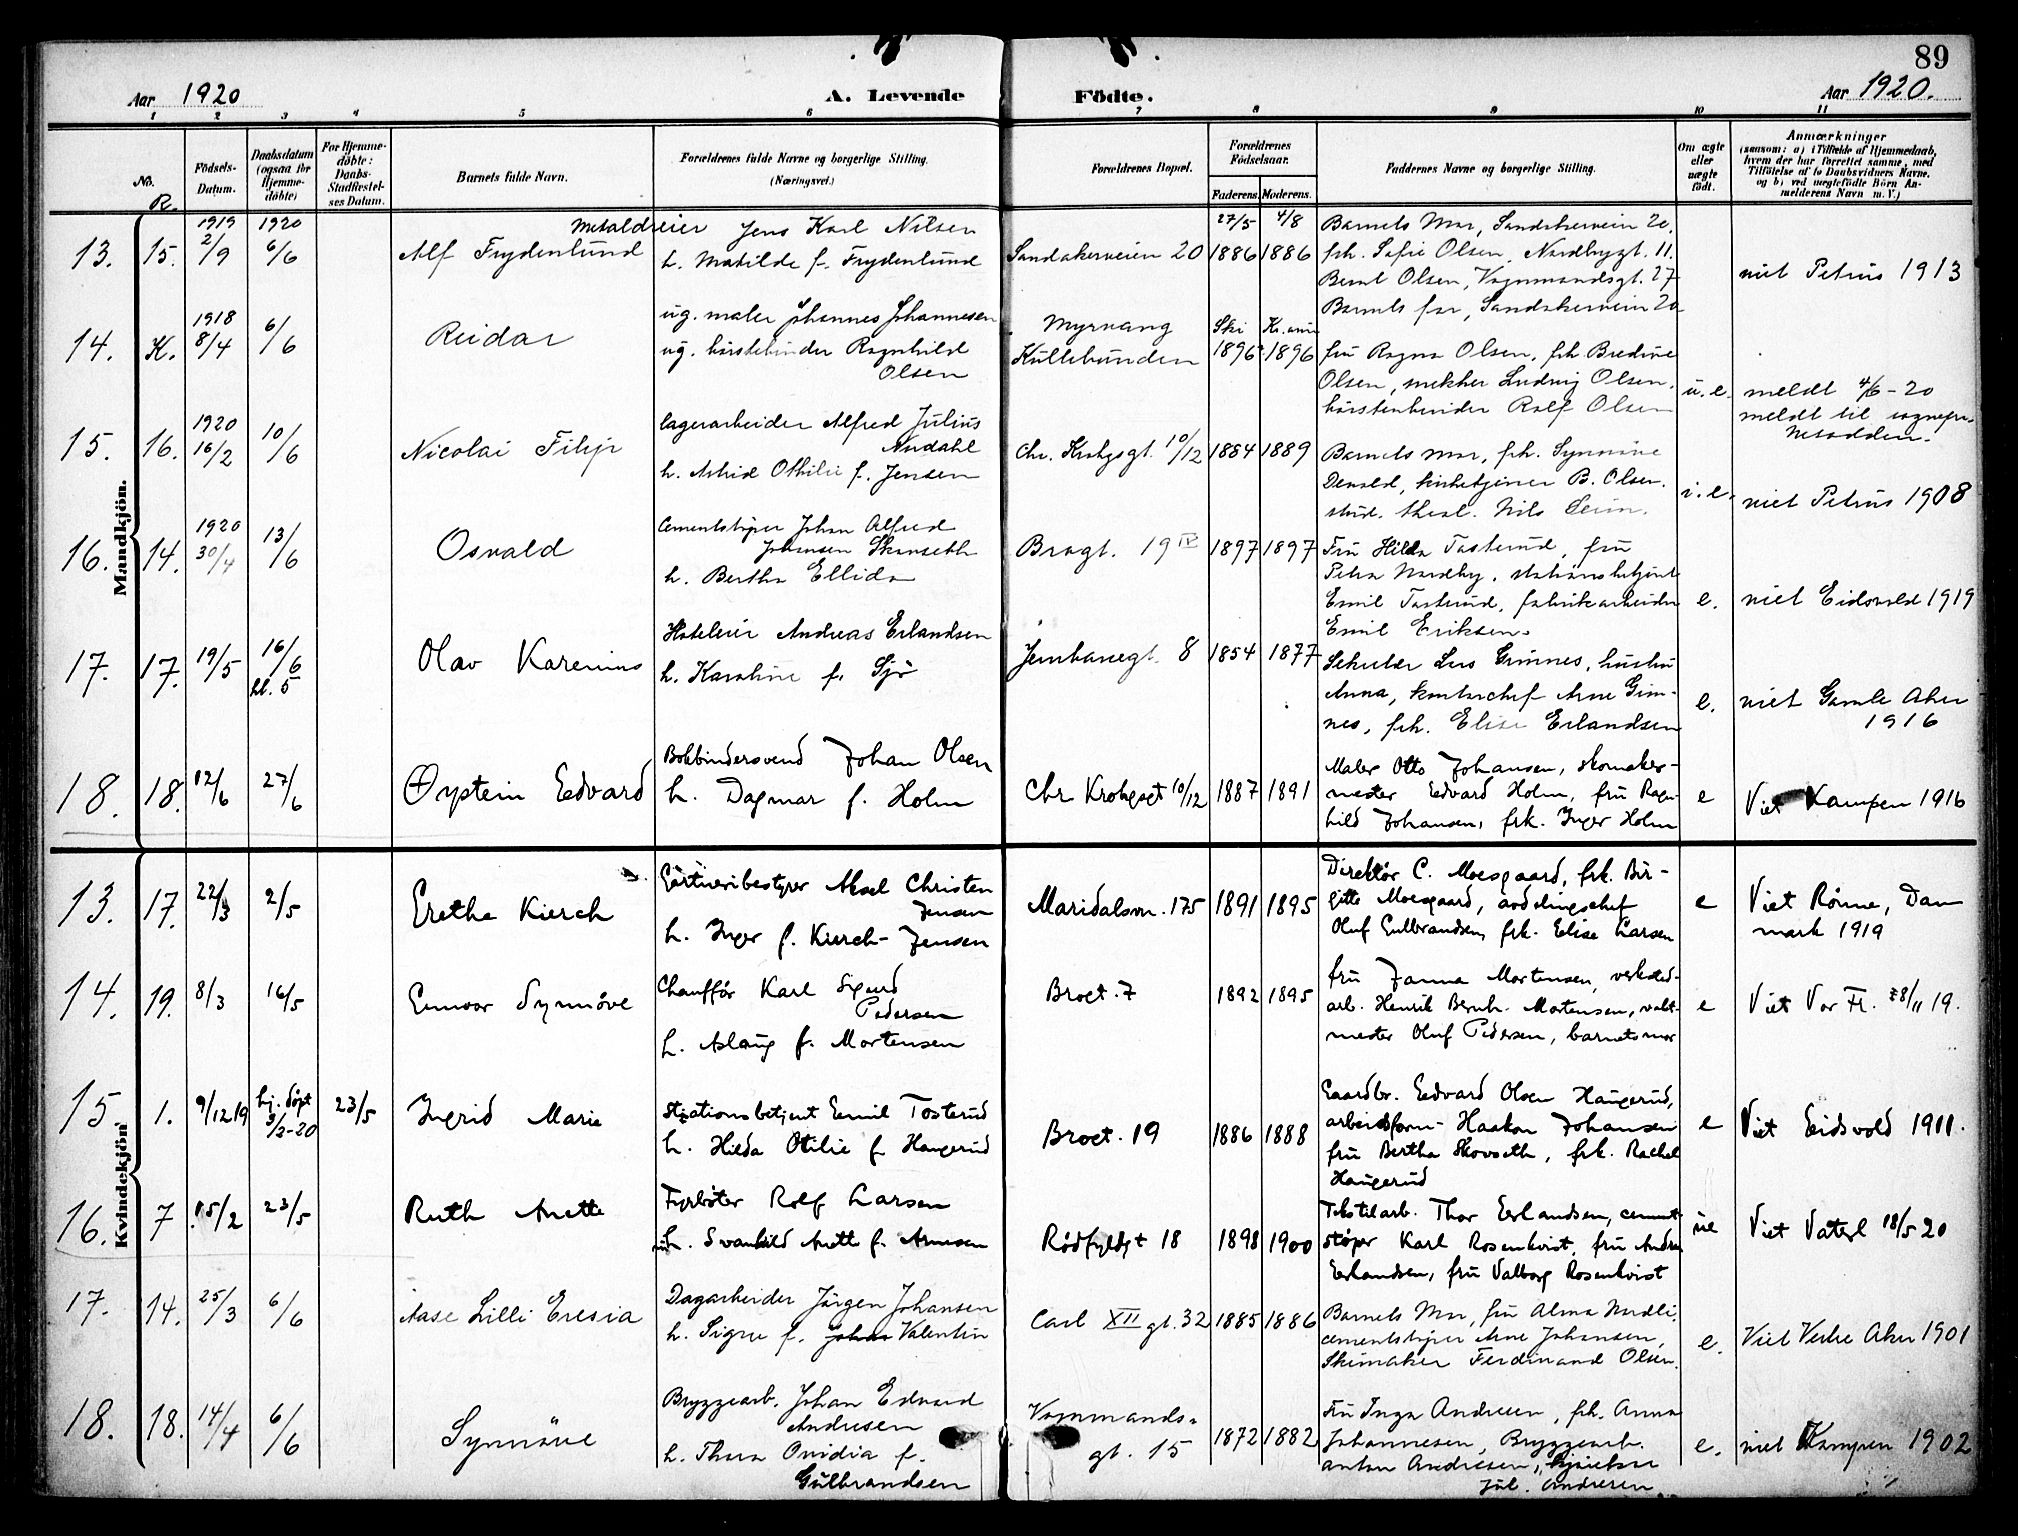 89
Aar 1920
A. Levende
Födte.
Aar 1920.
1 2 3 4 5 6 7 8 9 10 11
No.
R.
Födsels-Datum.
Daabsdatum (ogsaa for Hjemme-döbte)
For Hjemme-döbte: Daabs-Stadfæstel-ses Datum.
Barnets fulde Navn.
Forældrenes fulde Navne og borgerlige Stilling.
(Næringsvei.)
Forældrenes Bopæl.
Forældrenes Födselsaar.
Faderens. Moderens.
Faddernes Navne og borgerlige Stilling.
Om ægte eller uægte födt.
Anmærkninger
(saasom: a) i Tilfælde af Hjemmedaab,
hvem der har forrettet samme, med
Tilföielse af to Daabsvidners Navne.
og b) ved uægtefödte Börn An-
melderens Navn m. V.)
Mandkjön.
13. 15. 1919 2/9 1920 6/6 Alf Frydenlund
Metaldreier Jens Karl Nilsen
h. Matilde f. Frydenlund
Sandakerveien 20 27/5 1886 4/8 1886
Barnets Mor, Sandakervein 20.
frk. Sofie Olsen, Nordbygt. 11.
Bernt Olsen, Vognmandsgt. 27
Barnets far, Sandakervein 20
viet Petrus 1913
14. K. 1918 8/4 6/6 Reidar
ug. maler Johannes Johannesen
ug. börstebinder Ragnhild
Olsen
Myrvang
Kullebunden
Ski 1896 Kr.ania 1896
fru Ragna Olsen, frk. Bredine
Olsen, Ludvig Olsen,
börstenbinder Rolf Olsen
u. e. meldt 4/6-20
meldt til sognepr.
Nesodden.
15. 16. 1920 16/2 10/6 Nicolai Filip
lagerarbeider Alfred Julius
Nudahl
h. Astrid Othilie f. Jensen
Chr. Krohgsgt. 10/12 1884 1889
Barnets mor, frk. Synnöve
kirketjener B. Olsen.
stud. theol. Nils
i. e. viet Petrus 1908
16. 14. 1920 30/4 13/6 Osvald
Cementstöper Johan Alfred
Johansen Skanseth
h. Bertha Ellida
Brogt. 19 IV 1897 1897
Fru Hilda Tosterud, fru
Petra Nordby, stationsbetjent
Emil Tosterud, fabrikarbeider
Emil Eriksen.
e. viet Eidsvold 1919
17. 17. 19/5 16/6 kl. 5 Olav Karenius
Hoteleier Andreas Erlandsen
h. Karoline f. Sjö
Jernbanegt. 8 1854 1877
Lars Gimnes, hustru
Anna, kontorchef Arne Gim-
nes, frk. Elise Erlandsen
e. viet Gamle Aker
1916
18. 18. 12/6 27/6 Øystein Edvard
Bokbindersvend Johan Olsen
h. Dagmar f. Holm
Chr Krohgsgt 10/12 1887 1891
Maler Otto Johansen, skomaker-
mester Edvard Holm, fru Ragn-
hild Johansen, frk. Inger Holm
e Viet Kampen 1916
Kvindekjön
13. 17. 22/3 2/5 Grethe Kierch
Gartneribestyrer Aksel Christen
Jensen
h. Inger f. Kierch-Jensen
Maridalsvn. 175 1891 1895
Direktør C. Moesgaard, frk. Bir-
gitte Moesgaard, avdelingschef
Oluf Gulbrandsen, frk. Elise Larsen
e Viet Rönne, Dan
mark 1919
14. 19. 8/3 16/5 Gunvor Synnöve
Chauffør Karl Sigurd
Pedersen
h. Aslaug f. Mortensen
Brogt. 7 1892 1895
fru Janna Mortensen, verksted-
arb. Henrik Bernh. Mortensen,
mester Oluf Pedersen, barnets mor
e Viet Vor Fr. 28/11 19.
15 1. 9/12 19 hj. døpt 3/2-20 23/5 Ingrid Marie
Stationsbetjent Emil Tosterud
h. Hilda Otilie f Haugerud
Brogt. 19 1886 1888
Gaardbr. Edvard Olsen Haugerud,
arbeidsform- Haakon Johansen
fru Bertha Skovseth, frk. Rachel
Haugerud
e Viet Eidsvold 1911.
16. 7 15/2 23/5 Ruth Anette
Fyrbøter Rolf Larsen
h. Svanhild Anette f. Arnesen
Rødfyldgt 18 1898 1900
Tekstilarb. Thor Erlandsen, cement
støper Karl Rosenkvist, fru Andrea
Erlandsen, fru Valborg Rosenkvist
ue Viet Vaterl 18/5 20
17. 14. 25/3 6/6 Aase Lilli Eresia
Dagarbeider Jörgen Johansen
h. Signe f. Valentin
Carl XII gt. 32 1885 1886
Barnets Mor, fru Alma Nordli,
cementstöper Arne Johansen,
Skomaker Ferdinand Olsen.
e. Viet Vestre Aker 1901
18. 18. 14/4 6/6 Synnöve
Bryggearb. Johan Edvard
Andresen
h. Thora Ovidia f.
Gulbrandsen
Vognmands-
gt. 15 1872 1882
Fru Inga Andresen, frk. Anna
Johannesen, Bryggearb.
Anton Andresen,
Jul. Andresen
e. viet Kampen 1902